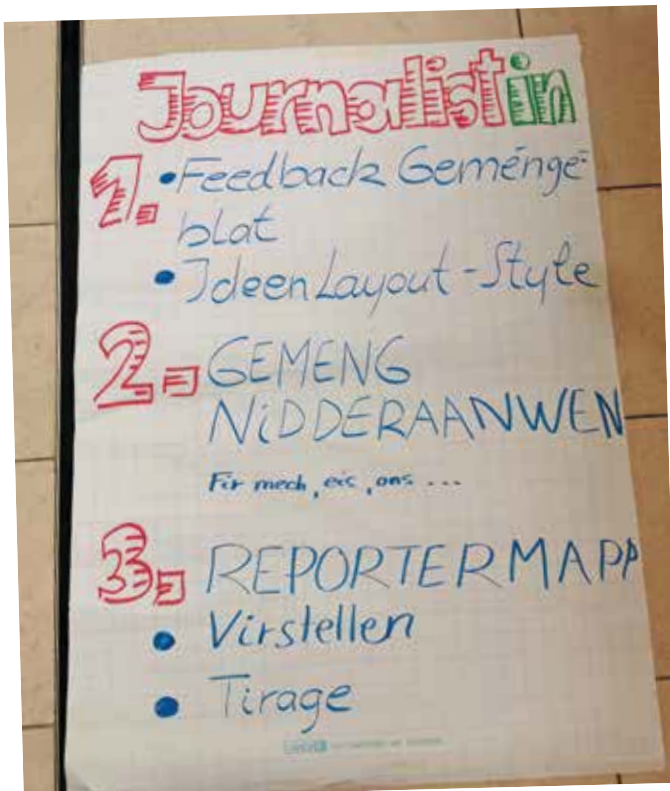 Journalistin
1. • Feedback Gemenge-
blat
• Ideen Layout - Style
2. GEMENG
NiDDERAANWEN
Fir mech, eis, ons ...
3. REPORTERMAPP
• Virstellen
• Tirage